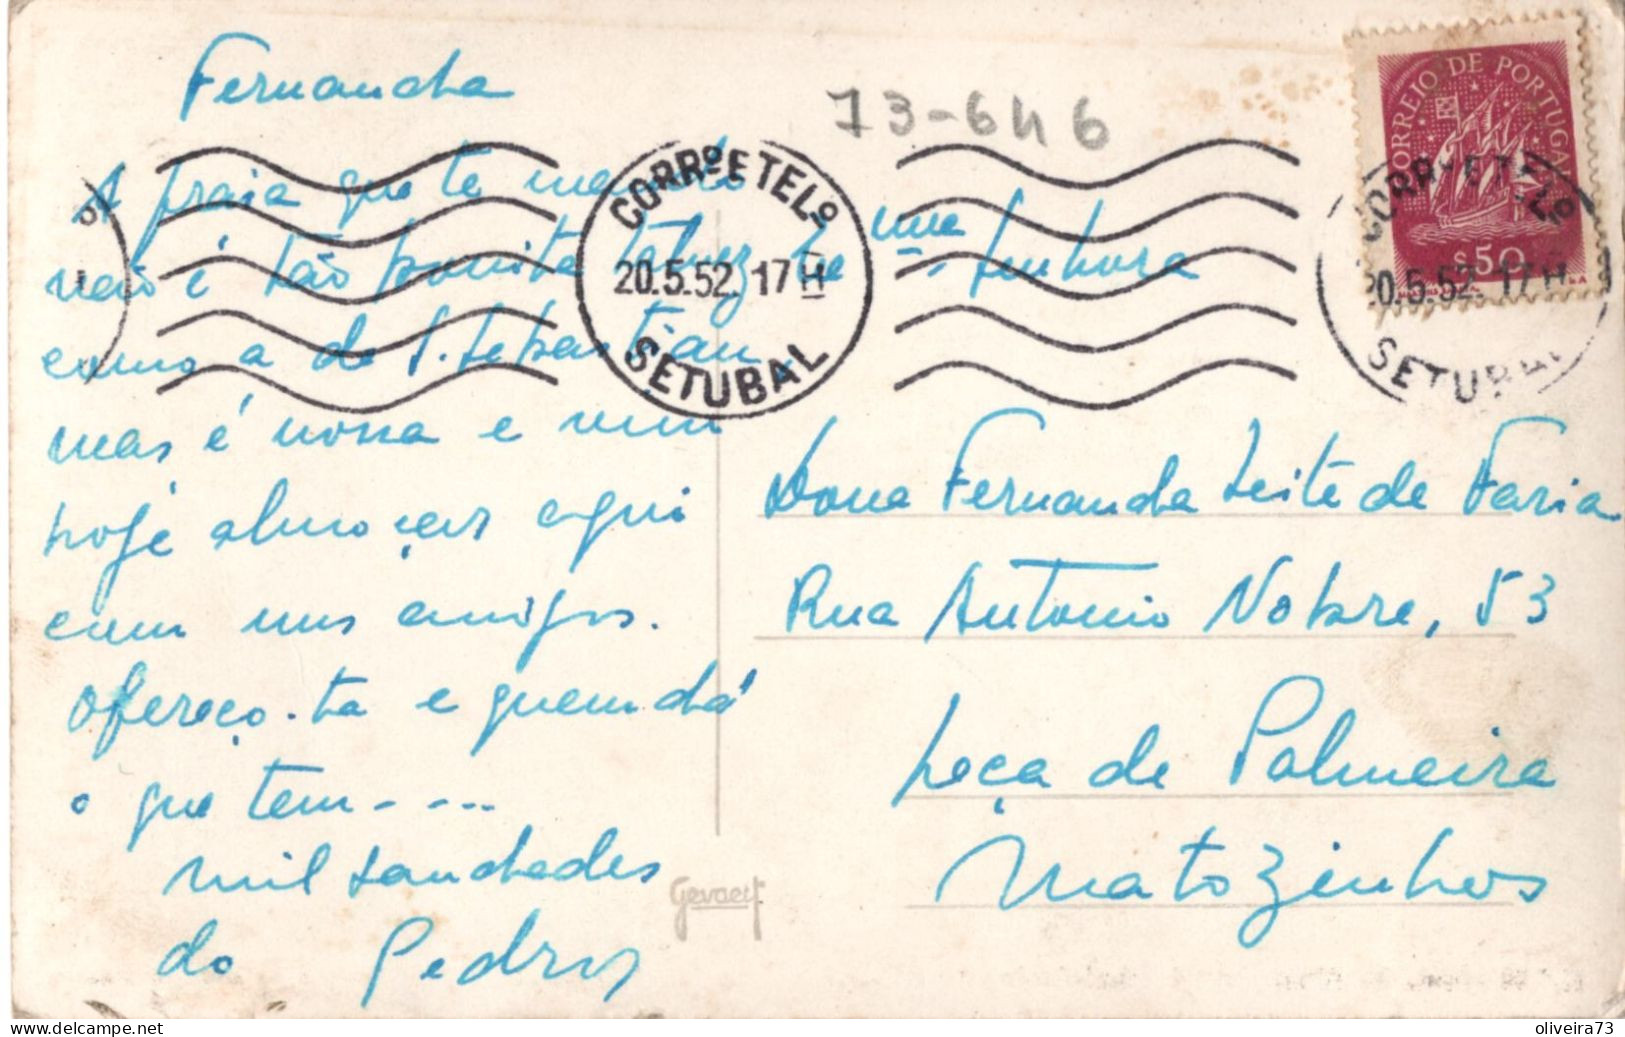 Fernanda
73-646
A praia que te mando
não é tão bonita talvez
como a de S. Sebastian
mas é nossa e vim
hoje almoçar aqui
com uns amigos.
Ofereço-ta e quem dá
o que tem - - ...
mil saudades
do Pedro
CORRº E TELº
20.5.52. 17H
SETUBAL
CORREIO DE PORTUGAL
$50
CORRº E TELº
20.5.52. 17H
SETUBAL
Senhora
Dona Fernanda Leite de Faria
Rua Antonio Nobre, 53
Leça de Palmeira
Matozinhos
Gevaert
oliveira73